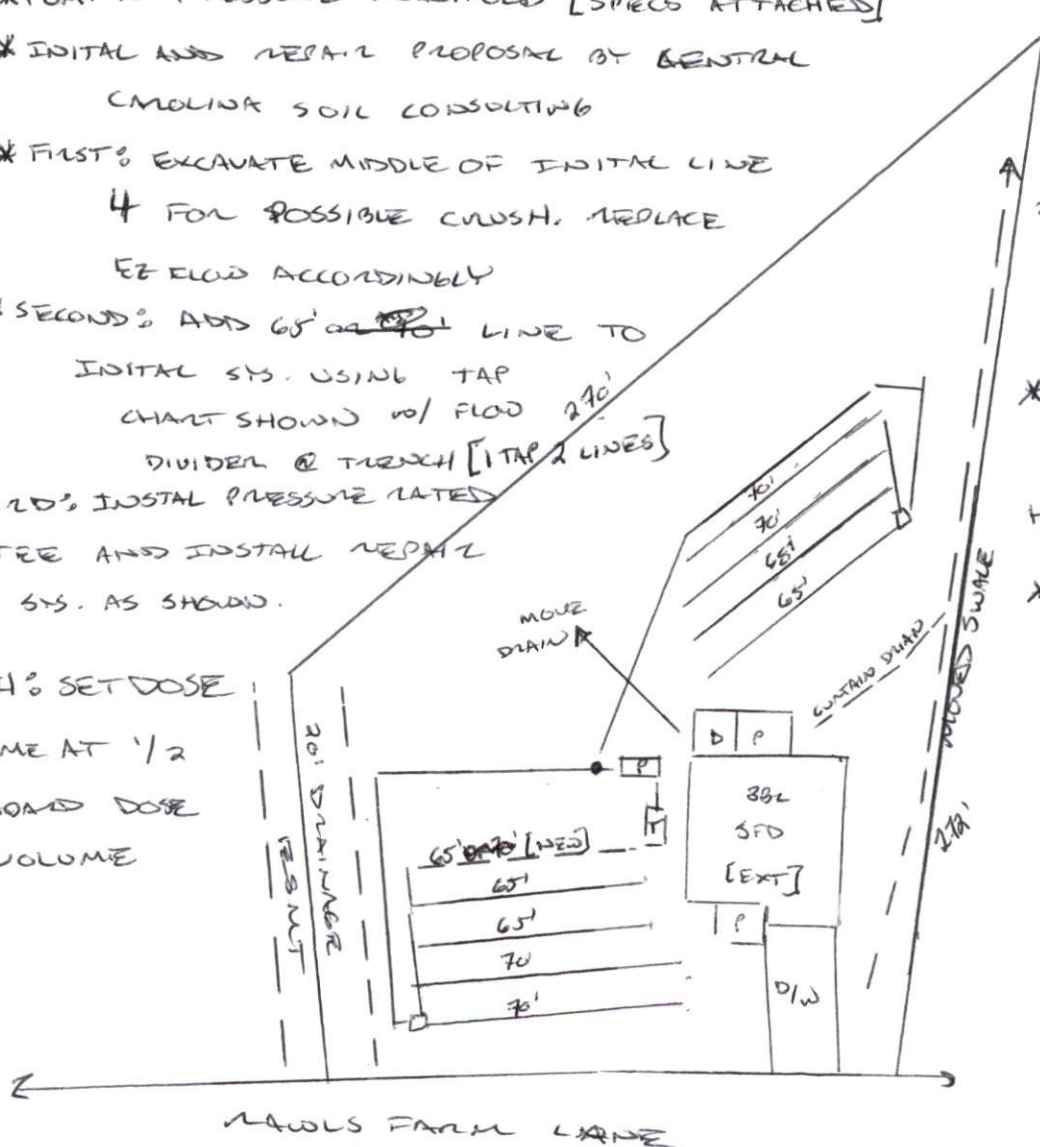 PRESSURE MANIFOLD [SPECS ATTACHED]
* INITAL AND REPAIR PROPOSAL BY CENTRAL
CAROLINA SOIL CONSULTING
* FIRST: EXCAVATE MIDDLE OF INITAL LINE
4 FOR POSSIBLE CRUSH. REPLACE
EZ FLOW ACCORDINGLY
SECOND: ADD 65' LINE TO
INITAL SYS. USING TAP
CHART SHOWN w/ FLOW
DIVIDER @ TRENCH [1 TAP 2 LINES]
RD: INSTAL PRESSURE RATED
TEE AND INSTALL REPAIR
SYS. AS SHOWN.
H: SET DOSE
ME AT 1/2
BOARD DOSE
VOLUME
270'
70'
70'
68'
65'
MOVE
DRAIN
CURTAIN DRIAN
MOVED SWALE
272'
D P
P
T
3BR
SFD
[EXT]
P
D/W
65' [NEW]
65'
65'
70'
70'
20' DRAINAGE
ESMT
RAWLS FARM LANE